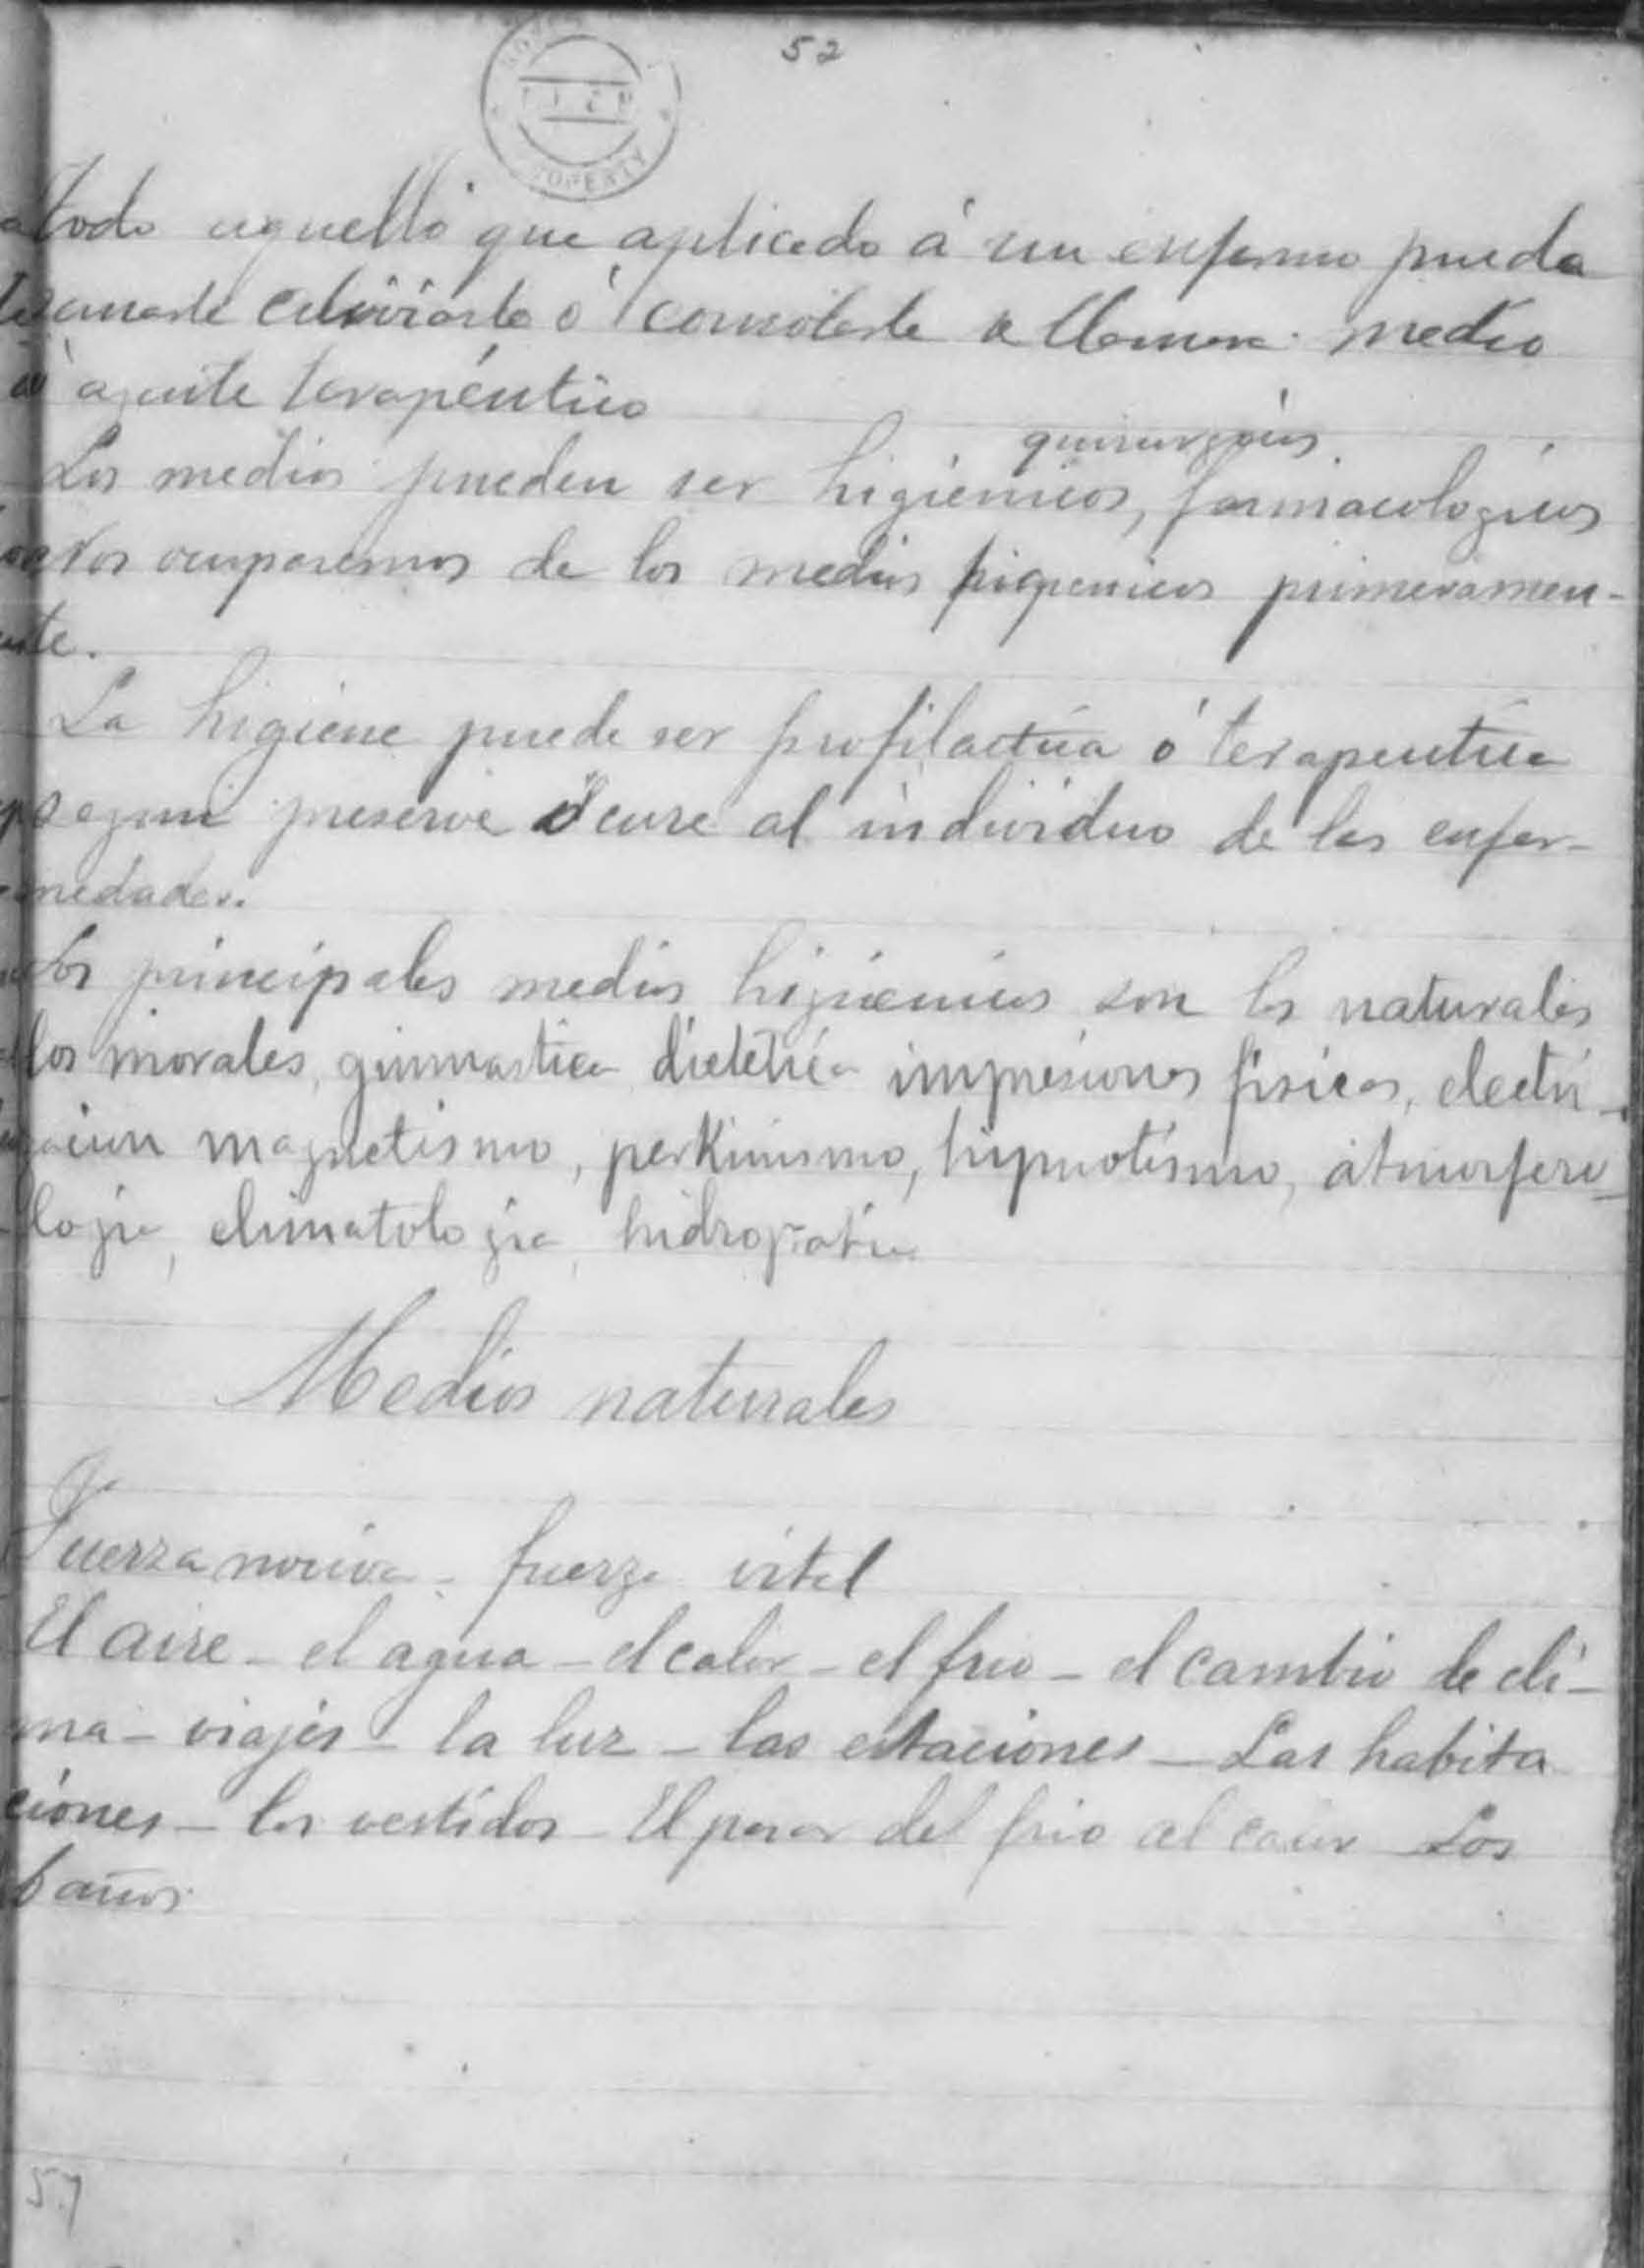 52
Todo aquello que aplicado á un enfermo pueda
sanarle aliviarle ó consolarle se llamara medio
ó agente terapéutico
quirurgicos
Los medios pueden ser higienicos, farmacologicos
Nos ocuparemos de los medios higienicos primeramen-
te.
La higiene puede ser profilactica ó terapeutica
segun preserve ó cure al individuo de las enfer-
medades.
Los principales medios higienicos son los naturales
los morales, gimnastica dietetica impresiones fisicas, electri-
zacion magnetismo, perkinismo, hipnotismo, atmosfero-
logia, climatologia, hidropatia
Medios naturales
Fuerza nociva - fuerza vital
El aire - el agua - el calor - el frio - el cambio de cli-
ma - viajes - la luz - las estaciones - Las habita
ciones - los vestidos - El pasar del frio al calor Los
baños
57